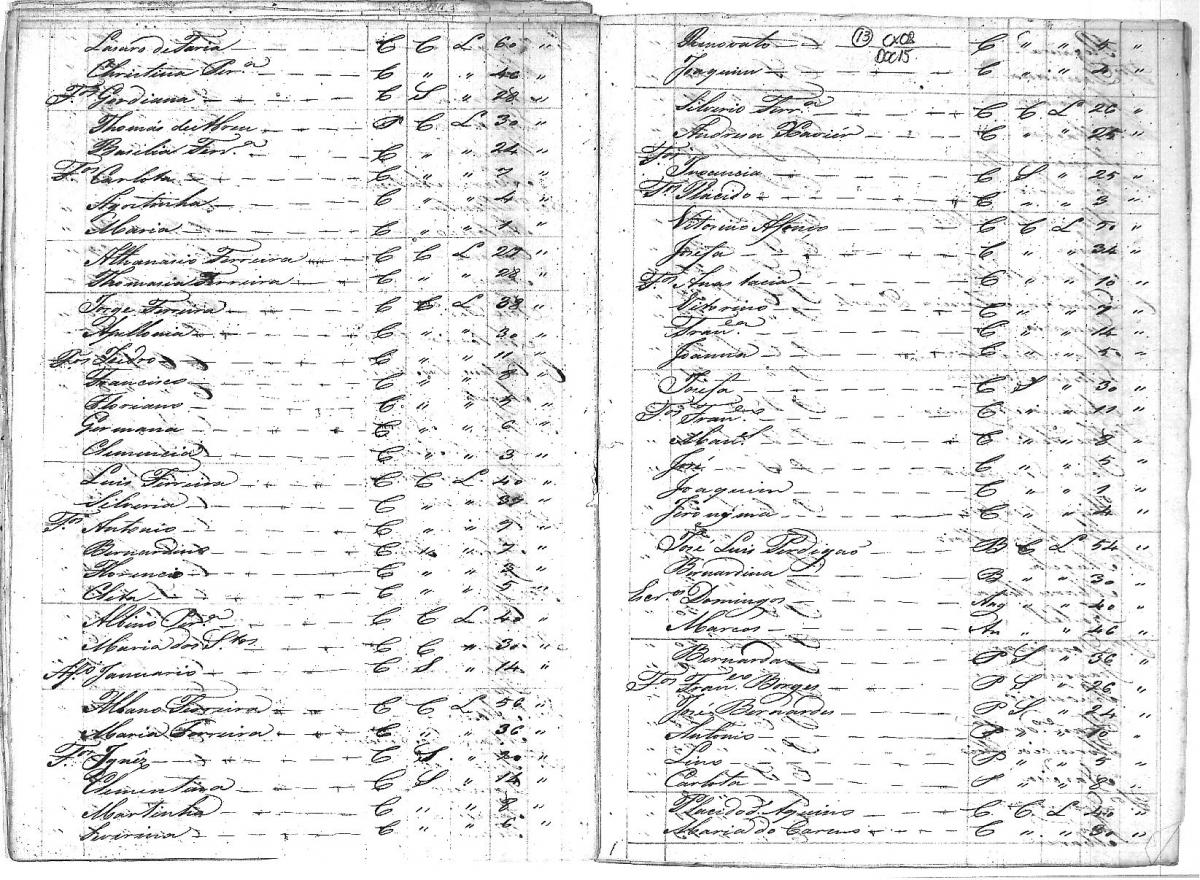 Lazaro de Faria C C L 60 "
Christina Per.ª C " " 40 "
F.ª Gordiana C S " 28 "
Thomás de Abreu P C L 30 "
Basilia Ferr.ª C " " 24 "
F.os Carlota C " " 7 "
Agostinha C " " 4 "
Maria C " " 1 "
Athanasio Ferreira C C L 29 "
Thomasia Ferreira C " " 28 "
Jorge Ferreira C C L 38 "
Apollonia C " " 30 "
F.os Izidro C " " 11 "
Francisco C " " 8 "
Floriano C " " 7 "
Germana C " " 6 "
Clemencia C " " 3 "
Luis Ferreira C C L 40 "
Silveria C " " 30 "
F.os Antonio C " " 9 "
Bernardino C " " 7 "
Florencio C " " "
C " " 5 "
Albino Per.ª C C L 40 "
Maria dos S.tos C C " 30 "
Januario C S " 14 "
Albano Ferreira C C L 56 "
Maria Ferreira C " " 36 "
F.os Ignêz C S " 20 "
Clementina C S " 14 "
Martinha C " " 8 "
Severina C " " 6 "
Renovato C " " 5 "
13 CX08
DOC15
Joaquim C " " 4 "
Silverio Ferr.ª C C L 26 "
Andreza Xavier C " " 25 "
F.os
Inocencia C S " 25 "
F.os Placido C " " 3 "
Vitorino Affonso C C L 50 "
Josefa C " " 34 "
F.os Anastacia C " " 10 "
Vitorino C " " 7 "
Fran.ca C " " 14 "
Joanna C " " 5 "
Josefa C S " 30 "
F.os Fran.co C " " 11 "
C " " 8 "
José C " " 5 "
Joaquim C " " 1 "
Jeronyma C " " 4 "
José Luis Perdigao B C L 54 "
Bernardina B " " 30 "
Escr.os Domingos Ang " " 40 "
Marcos An " " 46 "
Bernarda P S " 56 "
F.os Fran.co Borges P S " 26 "
José Bernardes P S " 24 "
Antonio P " " 10 "
Lino P " " 5 "
Carlota P " " 8 "
Placido d'Aquino C C L 40 "
Maria do Carmo C " " 30 "